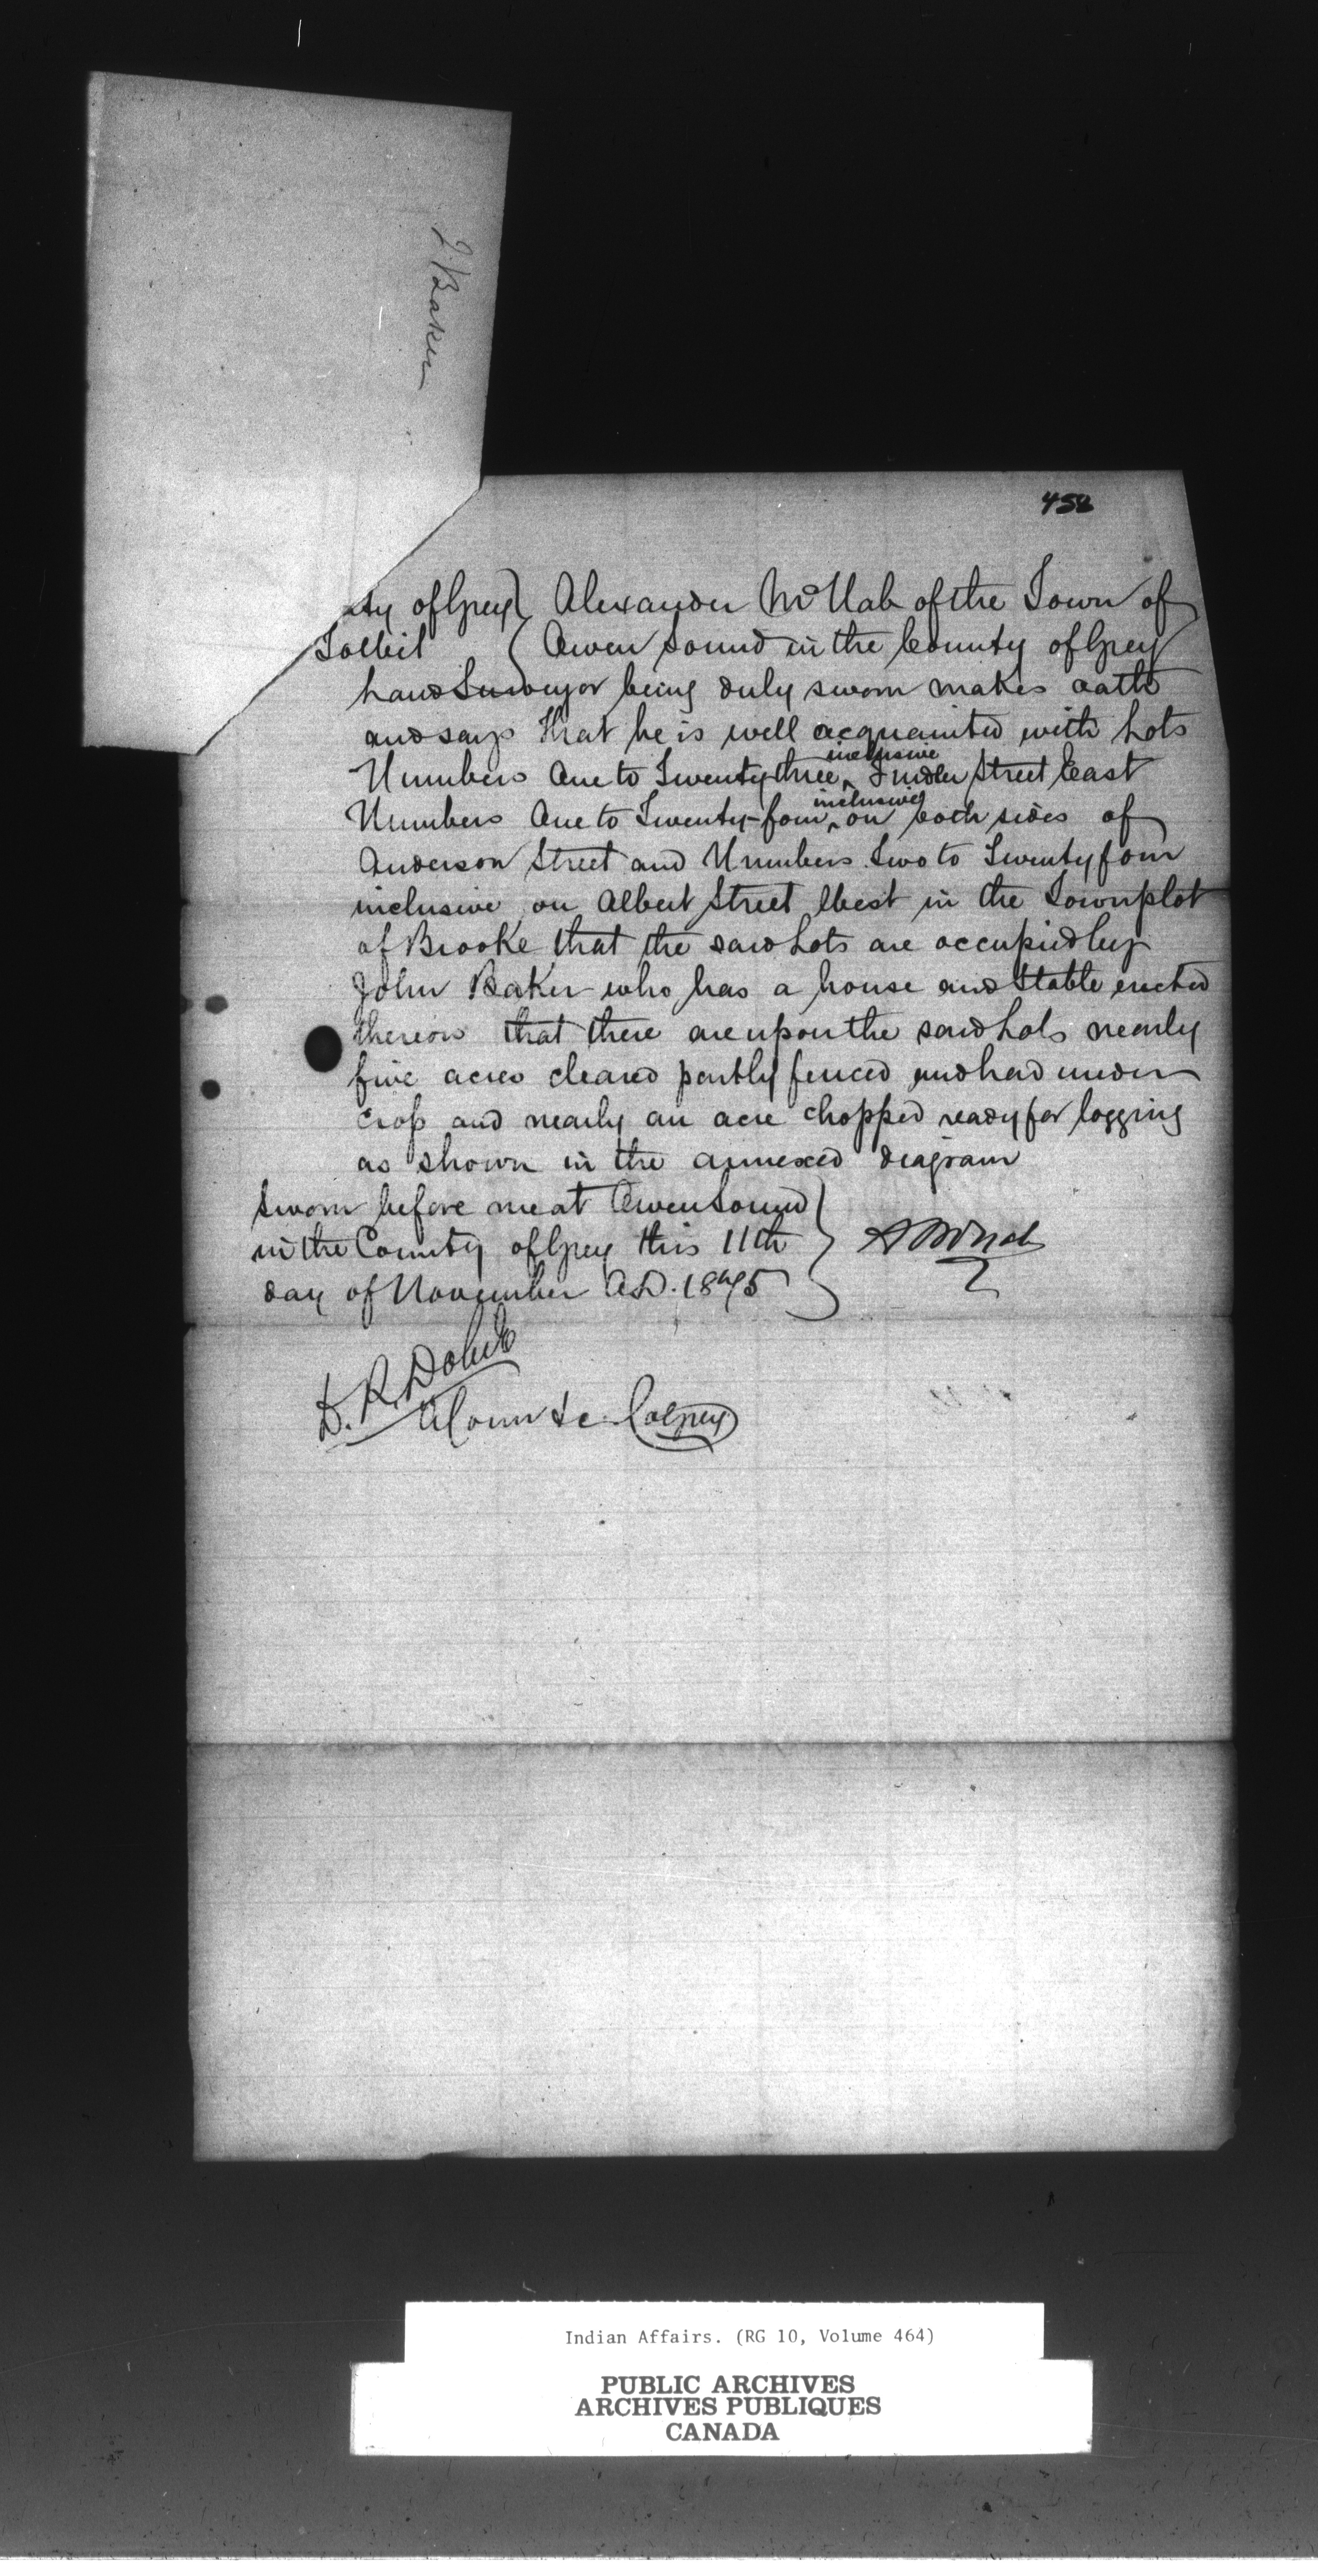 J. Baker
458
nty of Grey } Alexander McNab of the Town of
To Wit { Owen Sound in the County of Grey
Land Surveyor being duly sworn makes oath
and says That he is well acquainted with Lots
Numbers One to Twenty three inclusive Street East
Numbers One to Twenty-four inclusive on both sides of
Anderson Street and Numbers Two to Twenty four
inclusive on Albert Street West in the Townplot
of Brooke that the said Lots are occupied by
John Baker who has a house and Stable erected
thereon that there are upon the said Lots nearly
five acres cleared partly fenced and had under
crop and nearly an acre chopped ready for logging
as shown in the annexed diagram
Sworn before me at Owen Sound
in the County of Grey this 11th
day of November A.D. 1875
A McNab
D. R. Dobie
A Comr &c Co Grey
Indian Affairs. (RG 10, Volume 464)
PUBLIC ARCHIVES
ARCHIVES PUBLIQUES
CANADA